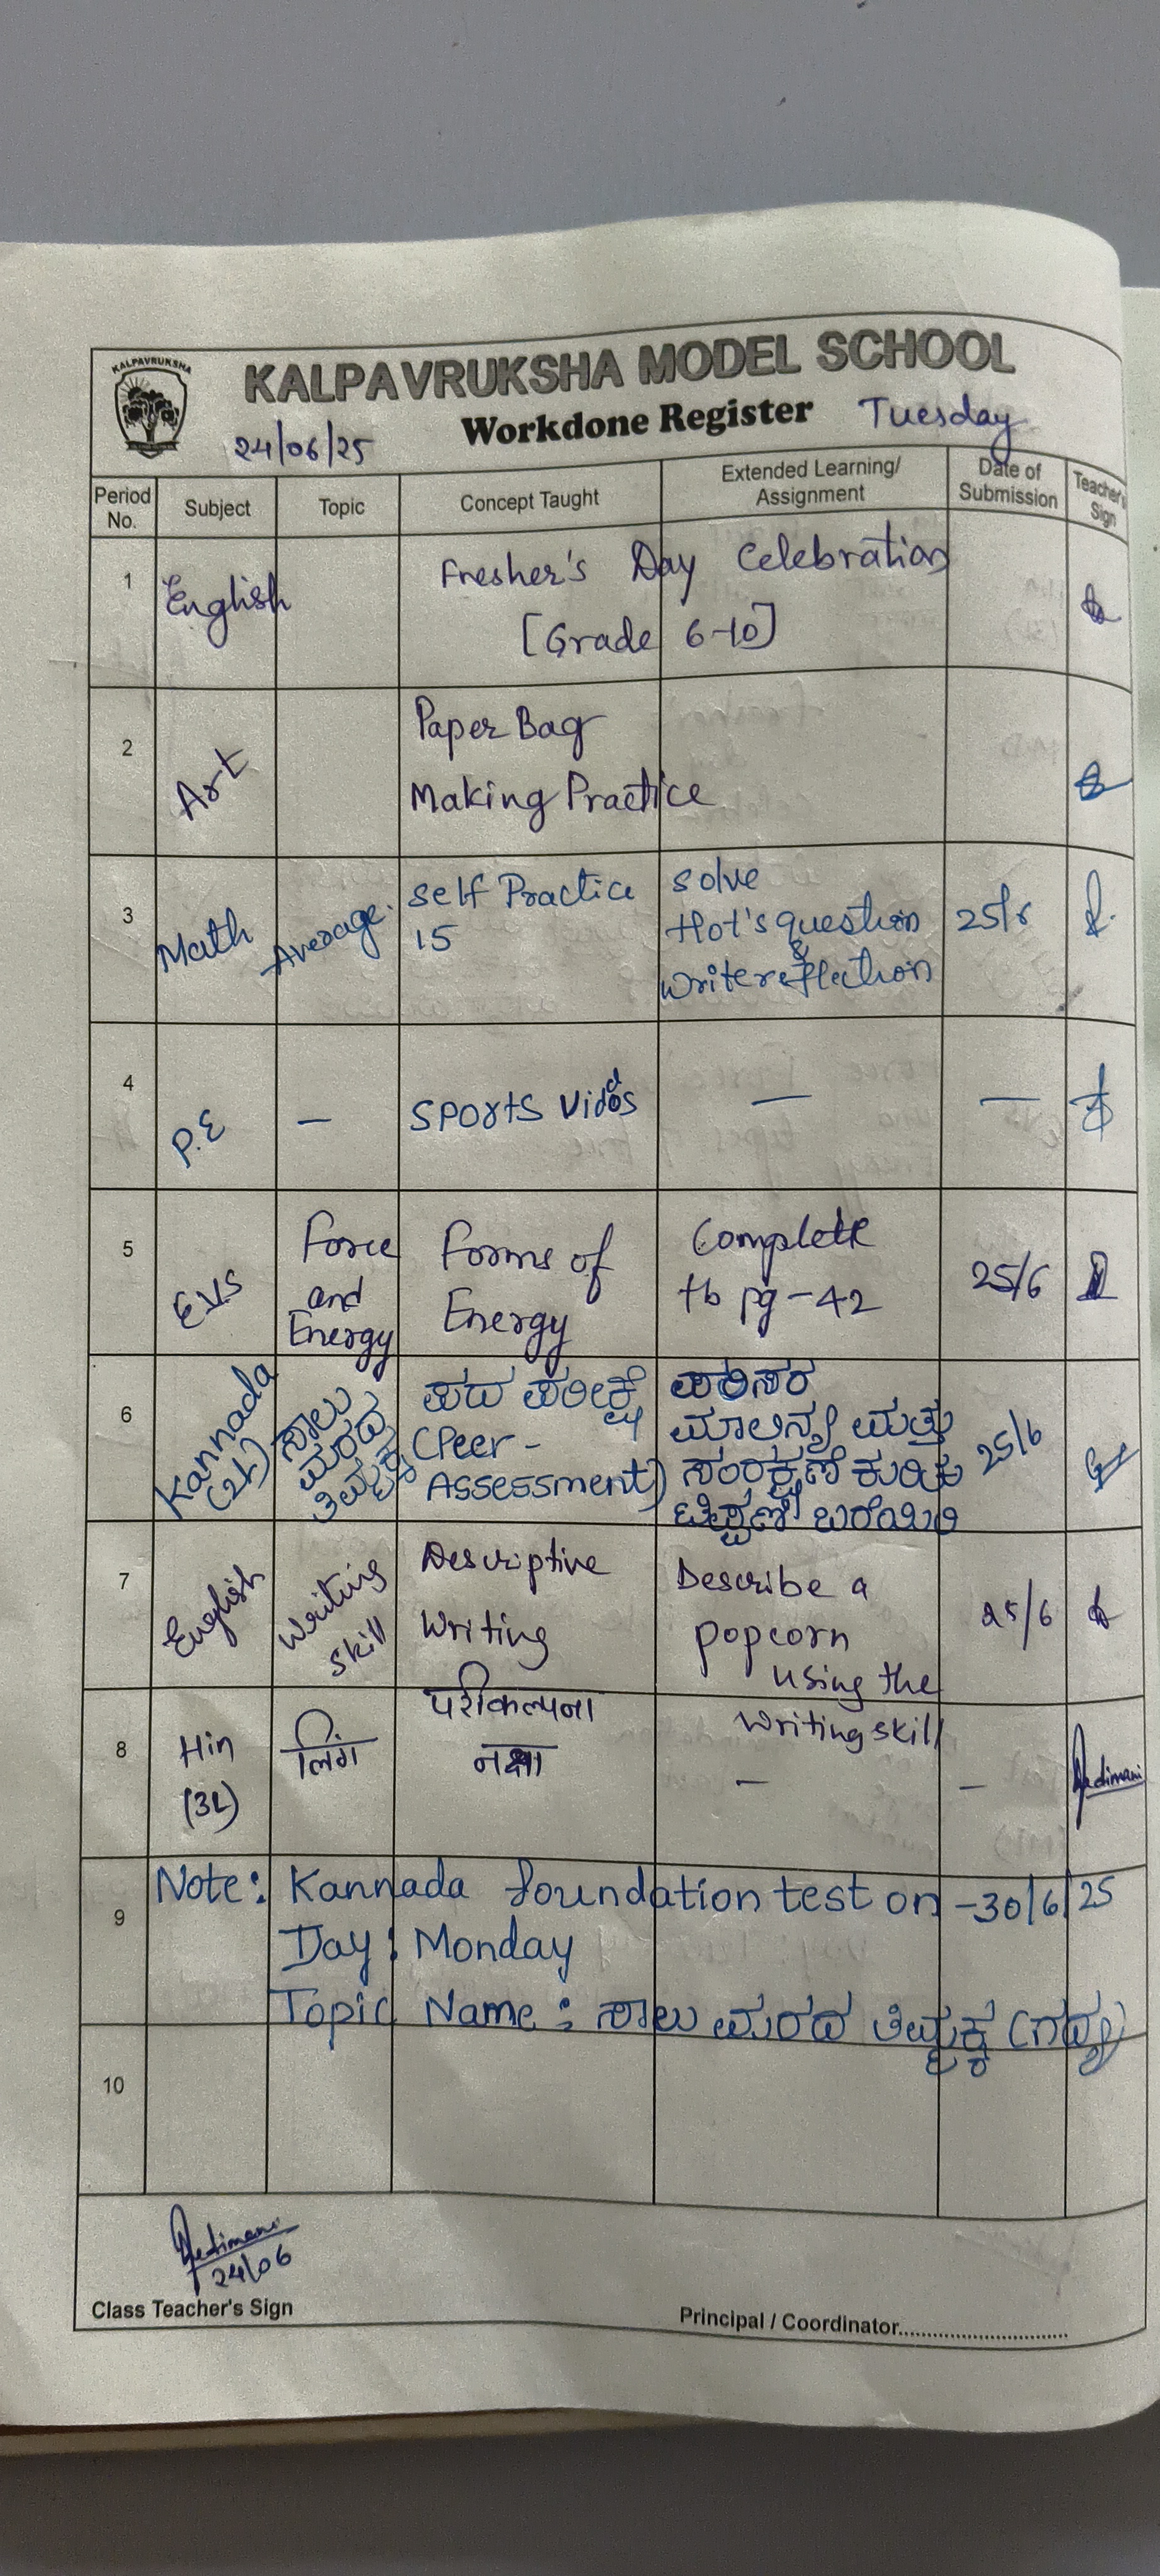 KALPAVRUKSHA
KALPAVRUKSHA MODEL SCHOOL
24/06/25 Workdone Register Tuesday
Period No. Subject Topic Concept Taught Extended Learning/ Assignment Date of Submission Teacher's Sign
1 English Fresher's Day Celebration
[Grade 6-10]
2 Art Paper Bag
Making Practice
3 Math Average. Self Practice 15 solve Hot's question & write reflection 25/6
4 P.E — Sports Videos — —
5 EVS Force and Energy Forms of Energy Complete tb pg-42 25/6
6 Kannada (2L) ಸಾಲು ಮರದ ತಿಮ್ಮಕ್ಕ ಪದ ಪರೀಕ್ಷೆ (Peer-Assessment) ಪರಿಸರ ಮಾಲಿನ್ಯ ಮತ್ತು ಸಂರಕ್ಷಣೆ ಕುರಿತು ಟಿಪ್ಪಣಿ ಬರೆಯಿರಿ 25/6
7 English Writing skill Descriptive Writing Describe a popcorn using the writing skill 25/6
8 Hin (3L) लिंग परीकल्पना नक्षा — — Hedimani
9 Note: Kannada foundation test on -30/6/25
Day: Monday
Topic Name: ಸಾಲು ಮರದ ತಿಮ್ಮಕ್ಕ (ಗದ್ಯ)
10
24/06
Class Teacher's Sign
Principal / Coordinator..............................